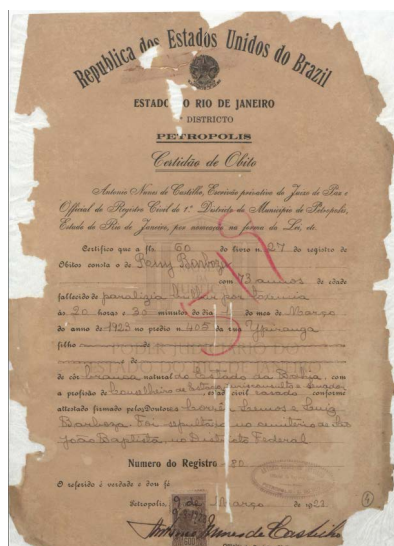 Republica dos Estados Unidos do Brazil
ESTADO DO RIO DE JANEIRO
DISTRICTO
PETROPOLIS
Certidão de Obito
Antonio Nunes de Castilho, Escrivão privativo do Juizo de Paz e
Official do Registro Civil do 1.º Districto do Municipio de Petropolis,
Estado do Rio de Janeiro, por nomeação na forma da Lei, etc.
Certifico que a fls. 60 do livro n. 27 do registro de
Obitos consta o de Ruy Barboza
com 73 annos de edade
fallecido de paralizia bulbar por toxemia
ás 20 horas e 30 minutos do dia do mez de Março
do anno de 1923 no predio n. 405 da rua Ypiranga
filho de
e de
de côr branca natural do Estado da Bahia, com
a profissão de Conselheiro de
estado civil casado, conforme
attestado firmado pelos Doutores Lemos e Luiz
Barboza. Foi sepultado no cemiterio de São
João Baptista, no Districto Federal
Numero do Registro 80
O referido é verdade e dou fé
Petropolis, 9 de Março de 1923
Antonio Nunes de Castilho
4